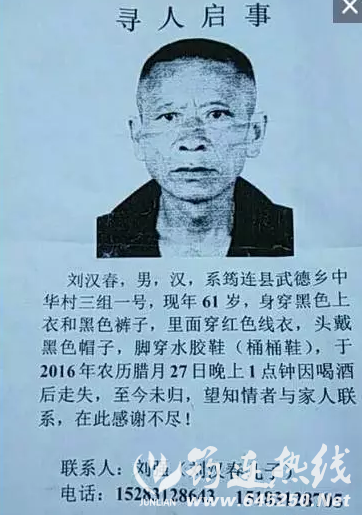 寻人启事
刘汉春，男，汉，系筠连县武德乡中
华村三组一号，现年 61 岁，身穿黑色上
衣和黑色裤子，里面穿红色线衣，头戴
黑色帽子，脚穿水胶鞋（桶桶鞋），于
2016 年农历腊月 27 日晚上 1 点钟因喝酒
后走失，至今未归，望知情者与家人联
系，在此感谢不尽！
联系人：刘 （刘汉春儿子）
电话：15283128643
连热线
JUNLIAN